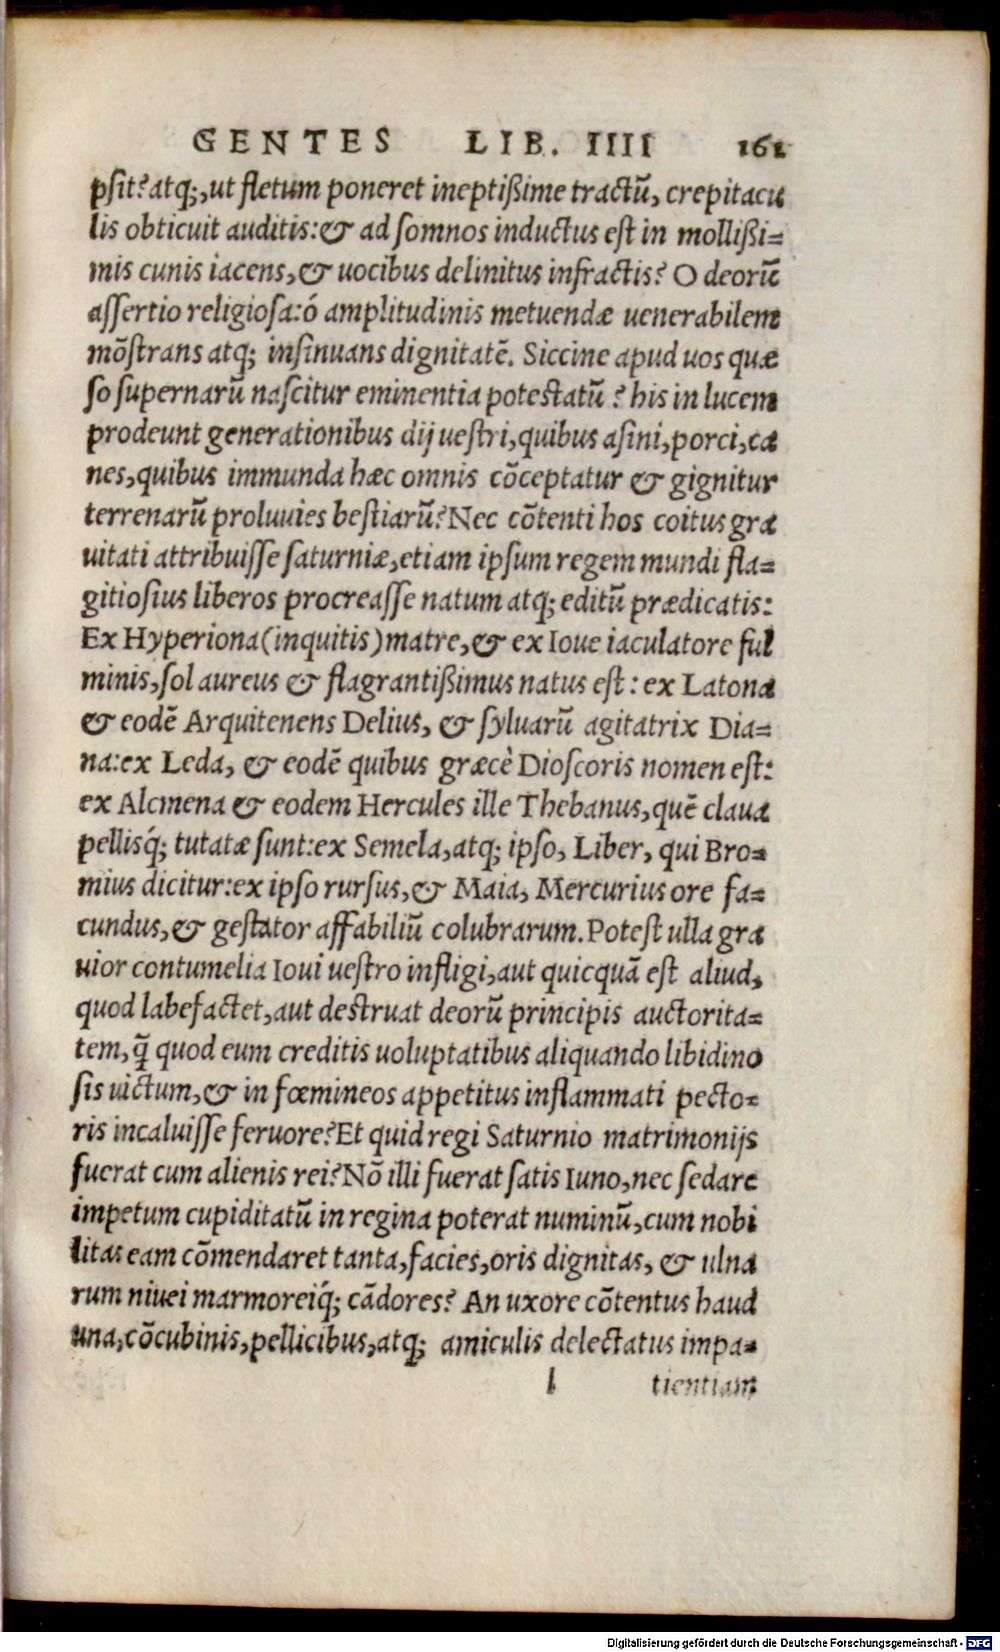 GENTES LIB. IIII 161
psit? atq;, ut fletum poneret ineptißime tractū, crepitacu
lis obticuit auditis: & ad somnos inductus est in mollißi=
mis cunis iacens, & uocibus delinitus infractis? O deorū
assertio religiosa: ó amplitudinis metuendæ uenerabilem
mōstrans atq; insinuans dignitatē. Siccine apud uos quæ
so supernarū nascitur eminentia potestatū? his in lucem
prodeunt generationibus dij uestri, quibus asini, porci, ca
nes, quibus immunda hæc omnis cōceptatur & gignitur
terrenarū proluuies bestiarū? Nec cōtenti hos coitus gra
uitati attribuisse saturniæ, etiam ipsum regem mundi fla=
gitiosius liberos procreasse natum atq; editū prædicatis:
Ex Hyperiona (inquitis) matre, & ex Ioue iaculatore ful
minis, sol aureus & flagrantißimus natus est: ex Latona
& eodē Arquitenens Delius, & syluarū agitatrix Dia=
na: ex Leda, & eodē quibus græcè Dioscoris nomen est:
ex Alcmena & eodem Hercules ille Thebanus, quē claua
pellisq́; tutatæ sunt: ex Semela, atq; ipso, Liber, qui Bro=
mius dicitur: ex ipso rursus, & Maia, Mercurius ore fa=
cundus, & gestator affabiliū colubrarum. Potest ulla gra
uior contumelia Ioui uestro infligi, aut quicquā est aliud,
quod labefactet, aut destruat deorū principis auctorita=
tem, q̄ quod eum creditis uoluptatibus aliquando libidino
sis uictum, & in fœmineos appetitus inflammati pecto=
ris incaluisse feruore? Et quid regi Saturnio matrimonijs
fuerat cum alienis rei? Nō illi fuerat satis Iuno, nec sedare
impetum cupiditatū in regina poterat numinū, cum nobi
litas eam cōmendaret tanta, facies, oris dignitas, & ulna
rum niuei marmoreiq́; cādores? An uxore cōtentus haud
una, cōcubinis, pellicibus, atq; amiculis delectatus impa=
l tientiam
Digitalisierung gefördert durch die Deutsche Forschungsgemeinschaft - DFG